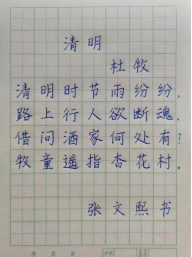 清明
杜牧
清明时节雨纷纷,
路上行人欲断魂,
借问酒家何处有?
牧童遥指杏花村.
张文熙书